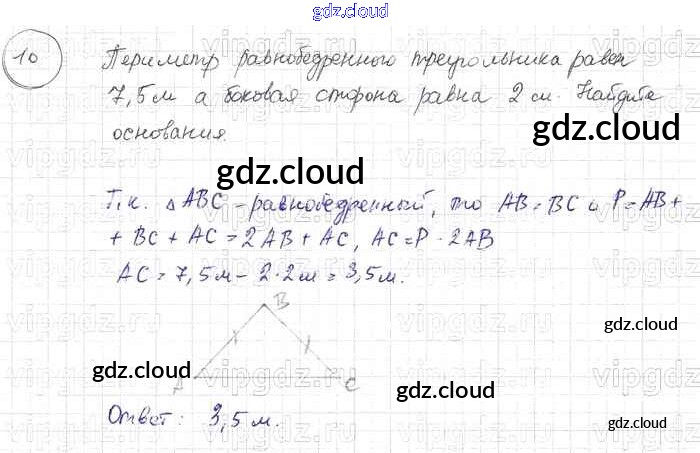 gdz.cloud
10
Периметр равнобедренного треугольника равен
7,5 м а боковая сторона равна 2 м. Найдите
основания.
gdz.cloud
gdz.cloud
Т.к. △ABC - равнобедренный, то AB = BC и P = AB +
+ BC + AC = 2AB + AC, AC = P - 2AB
AC = 7,5 м - 2·2 м = 3,5 м.
B
gdz.cloud
gdz.cloud
A
C
gdz.cloud
Ответ: 3,5 м.
gdz.cloud
gdz.cloud